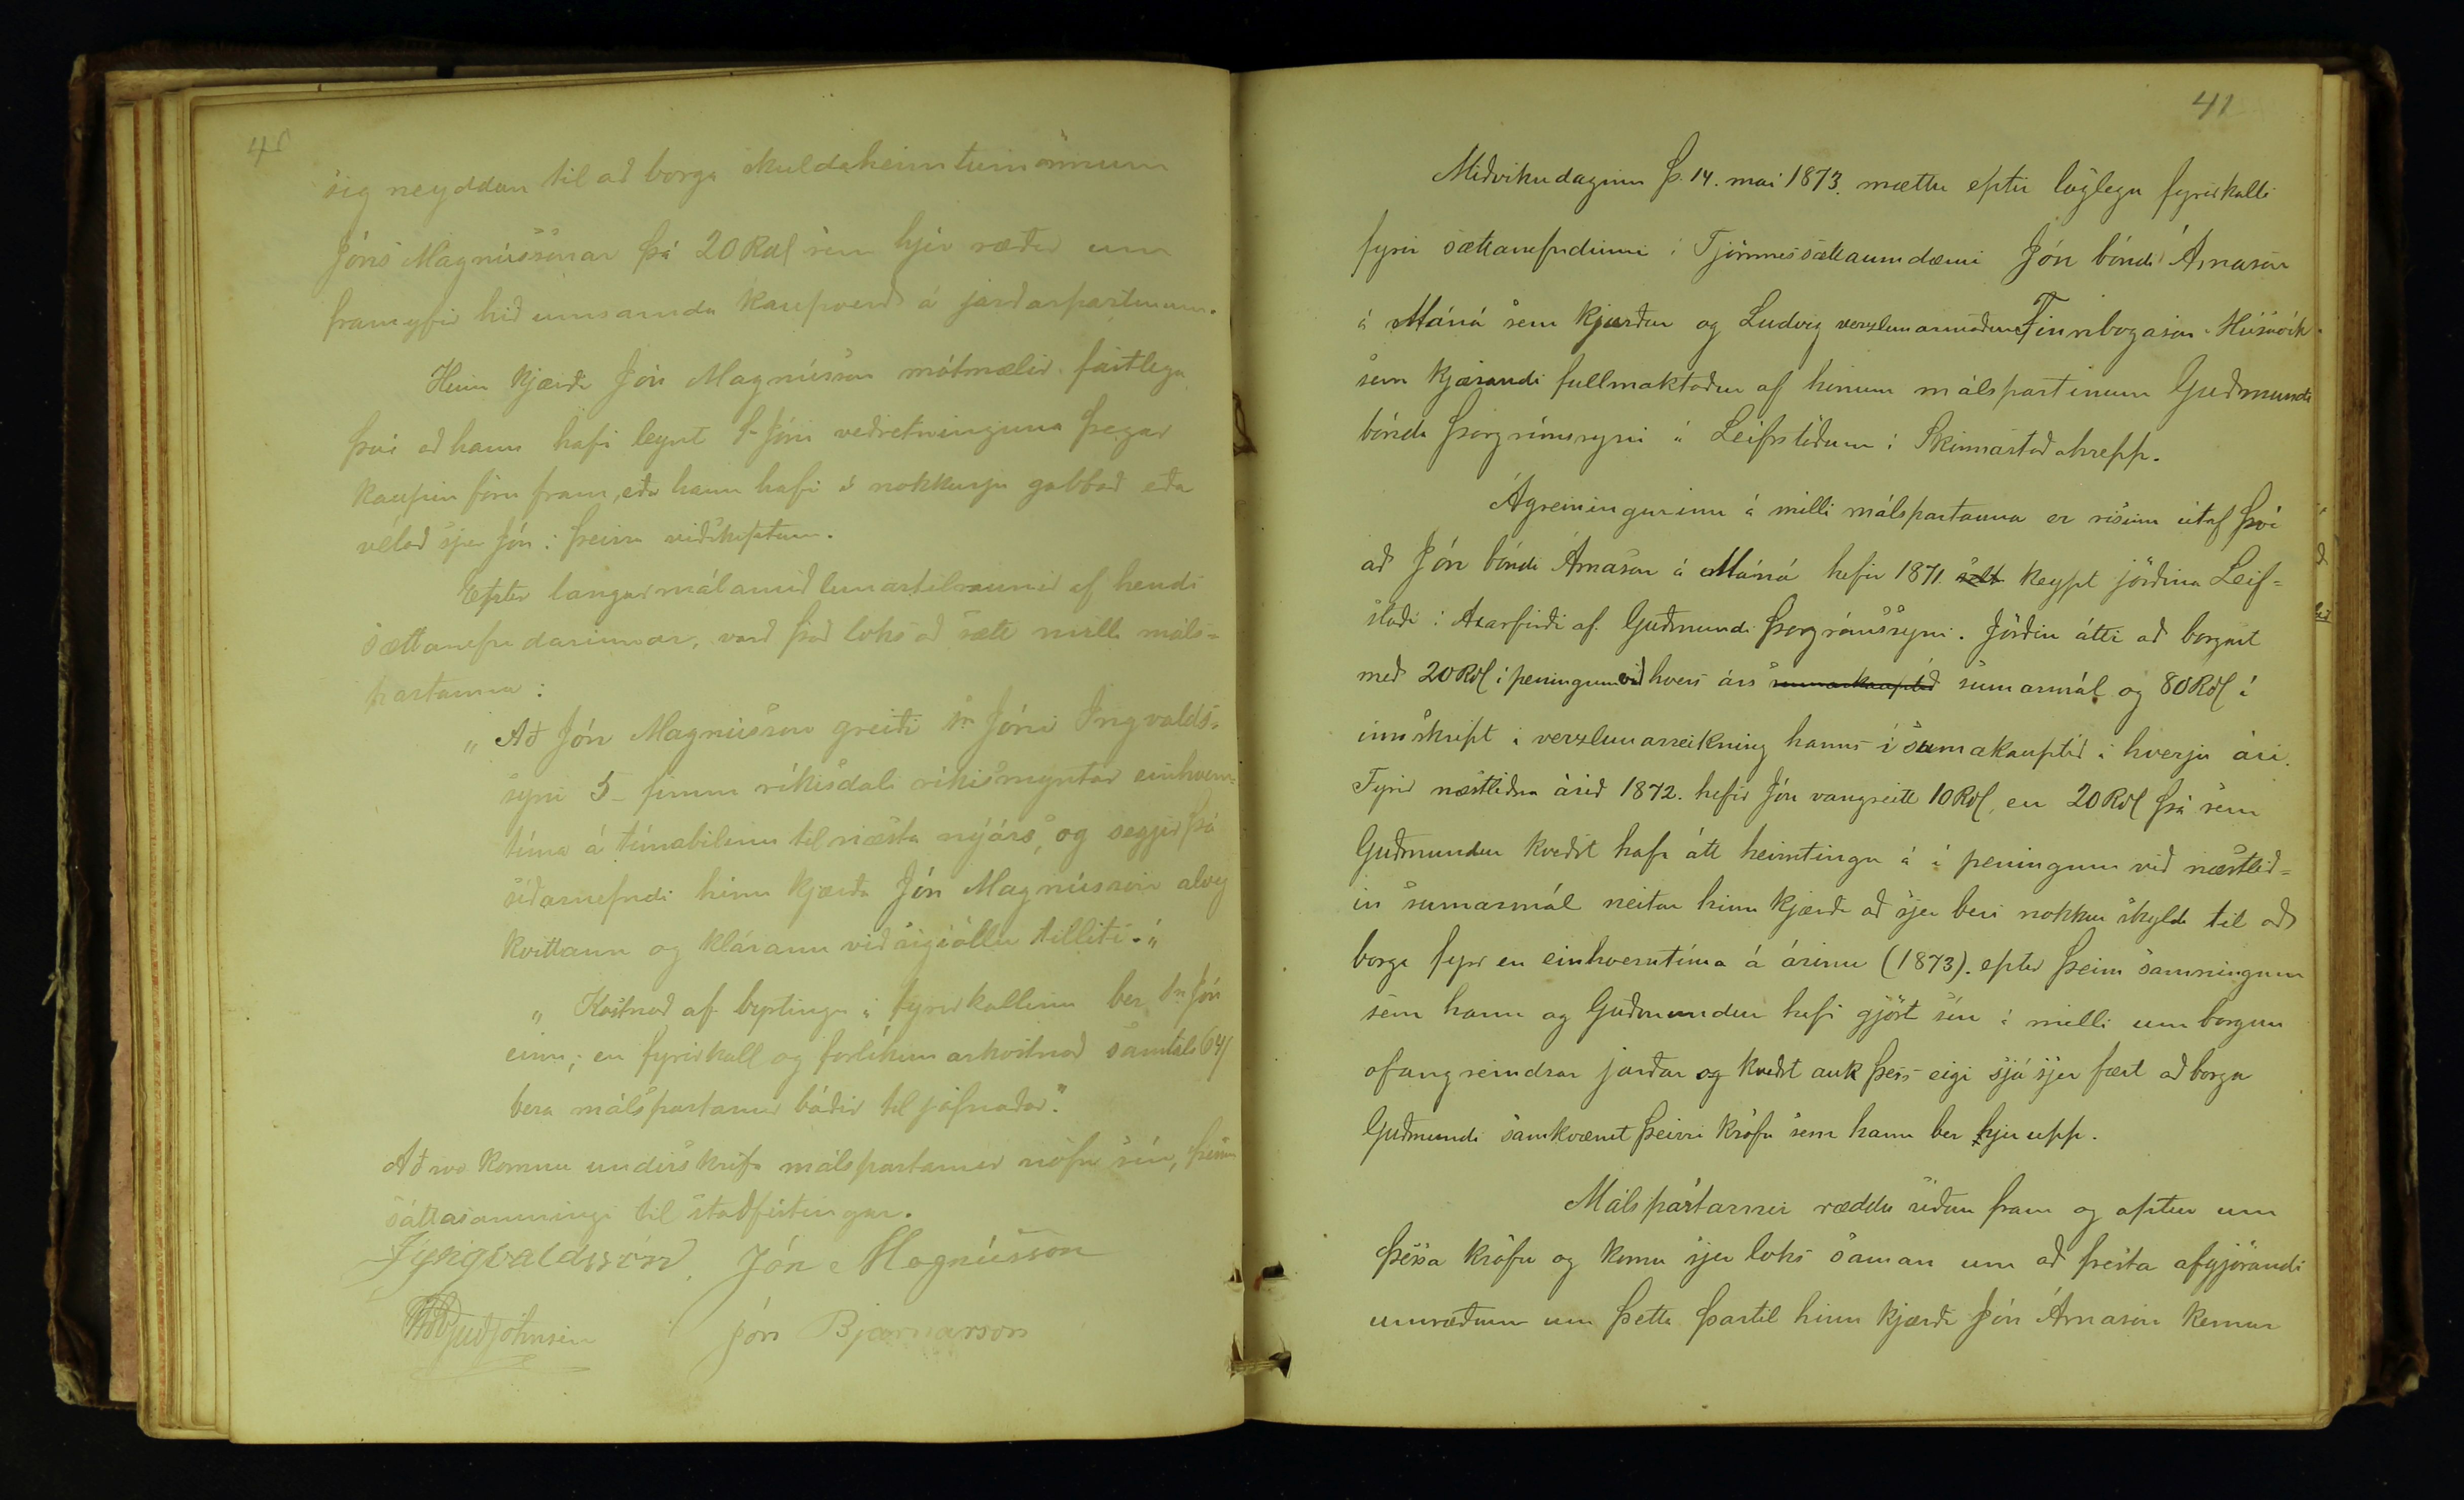 40
sig neyddan til að borga skuldaheimtumönnum
Jóns Magnússonar þá 20 Rdl sem hjer ræðir um
framyfir hið umsamda kaupverð á jarðarpartinum.
Hinn kjærði Jón Magnússon mótmælir fastlega
því að hann hafi leynt Sr Jón veðretninguna þegar
kaupin fóru fram, eða hann hafi í nokkurju gabbað eða
vélað sjer Jón í þeirra viðskiptum.
Eptir langar málamiðlunartilraunir af hendi
sættanefndarinnar, varð það loks að sætt milli máls-
partanna:
„Að Jón Magnússon greiði sr. Jóni Ingvalds-
syni 5 - fimm ríkisdali ríkismyntar einhvern-
tíma á tímabilinu til næsta nýárs, og segjir þá
síðarnefndi hinn kjærða Jón Magnússon alveg
kvittann og klárann við sig í öllu tilliti."
„Kostnað af byrtingu á fyrirkallinu ber Sr. Jón
einn; en fyrirkall og forlíkunarkostnað samtals 64 /
bera málspartarnir báðir til jafnaðar."
Að svo komnu undirskrifa málspartarnir nöfn sín, þessum
sáttasamningi til staðfestingar.
JYngvaldsson, Jón Magnússon
Guðjohnsen Jón Bjarnarson
41
Miðvikudaginn þ. 14. mai 1873. mættu eptir löglegu fyrirkalli
fyrir sættanefndinni í Tjörnessáttaumdæmi Jón bóndi Árnason
á Máná sem kjærður og Ludvig verzlunarmaður Finnbogason í Húsavík
sem kjærandi fullmaktaður af hinum málspartinum Guðmundi
bónda Þorgrímssyni á Leifsstöðum í Skinnastaðahrepp.
Ágreiningurinn á milli málspartanna er risinn útaf því
að Jón bóndi Árnason á Máná hefir 1871 selt keypt jörðina Leif-
staði í Axarfirði af Guðmundi Þorgrímssyni. Jörðin átti að borgast
með 20 Rdl í peningum við hvers árs sumarkauptíð sumarmál og 80 Rdl í
innskript í verzlunarreikning hanns í sumakauptíð á hverju ári.
Fyrir næstliðna árið 1872. hefir Jón vangreitt 10 Rdl, en 20 Rdl þá sem
Guðmundur kveðst hafa átt heimtingu á í peningum við næstlið-
in sumarmál neitar hinn kjærði að sjer beri nokkur skylda til að
borga fyr en einhverntíma á árinu (1873). eptir þeim samningum
sem hann og Guðmundur hafi gjört sín á milli um borgun
ofangreindrar jarðar og kveðst auk þess eigi sjá sjer fært að borga
Guðmundi samkvæmt þeirri kröfu sem hann ber hjer upp.
Málspartarnir ræddu síðan fram og aptur um
þessa kröfu og komu sjer loks saman um að fresta afgjörandi
umræðum um þetta þartil hinn kjærði Jón Árnason kemur